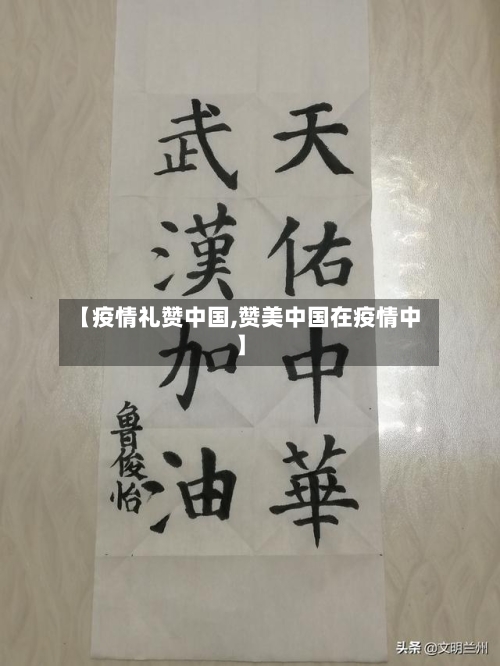 天佑中華
武漢加油
魯俊怡
【疫情礼赞中国,赞美中国在疫情中
】
头条 @文明兰州